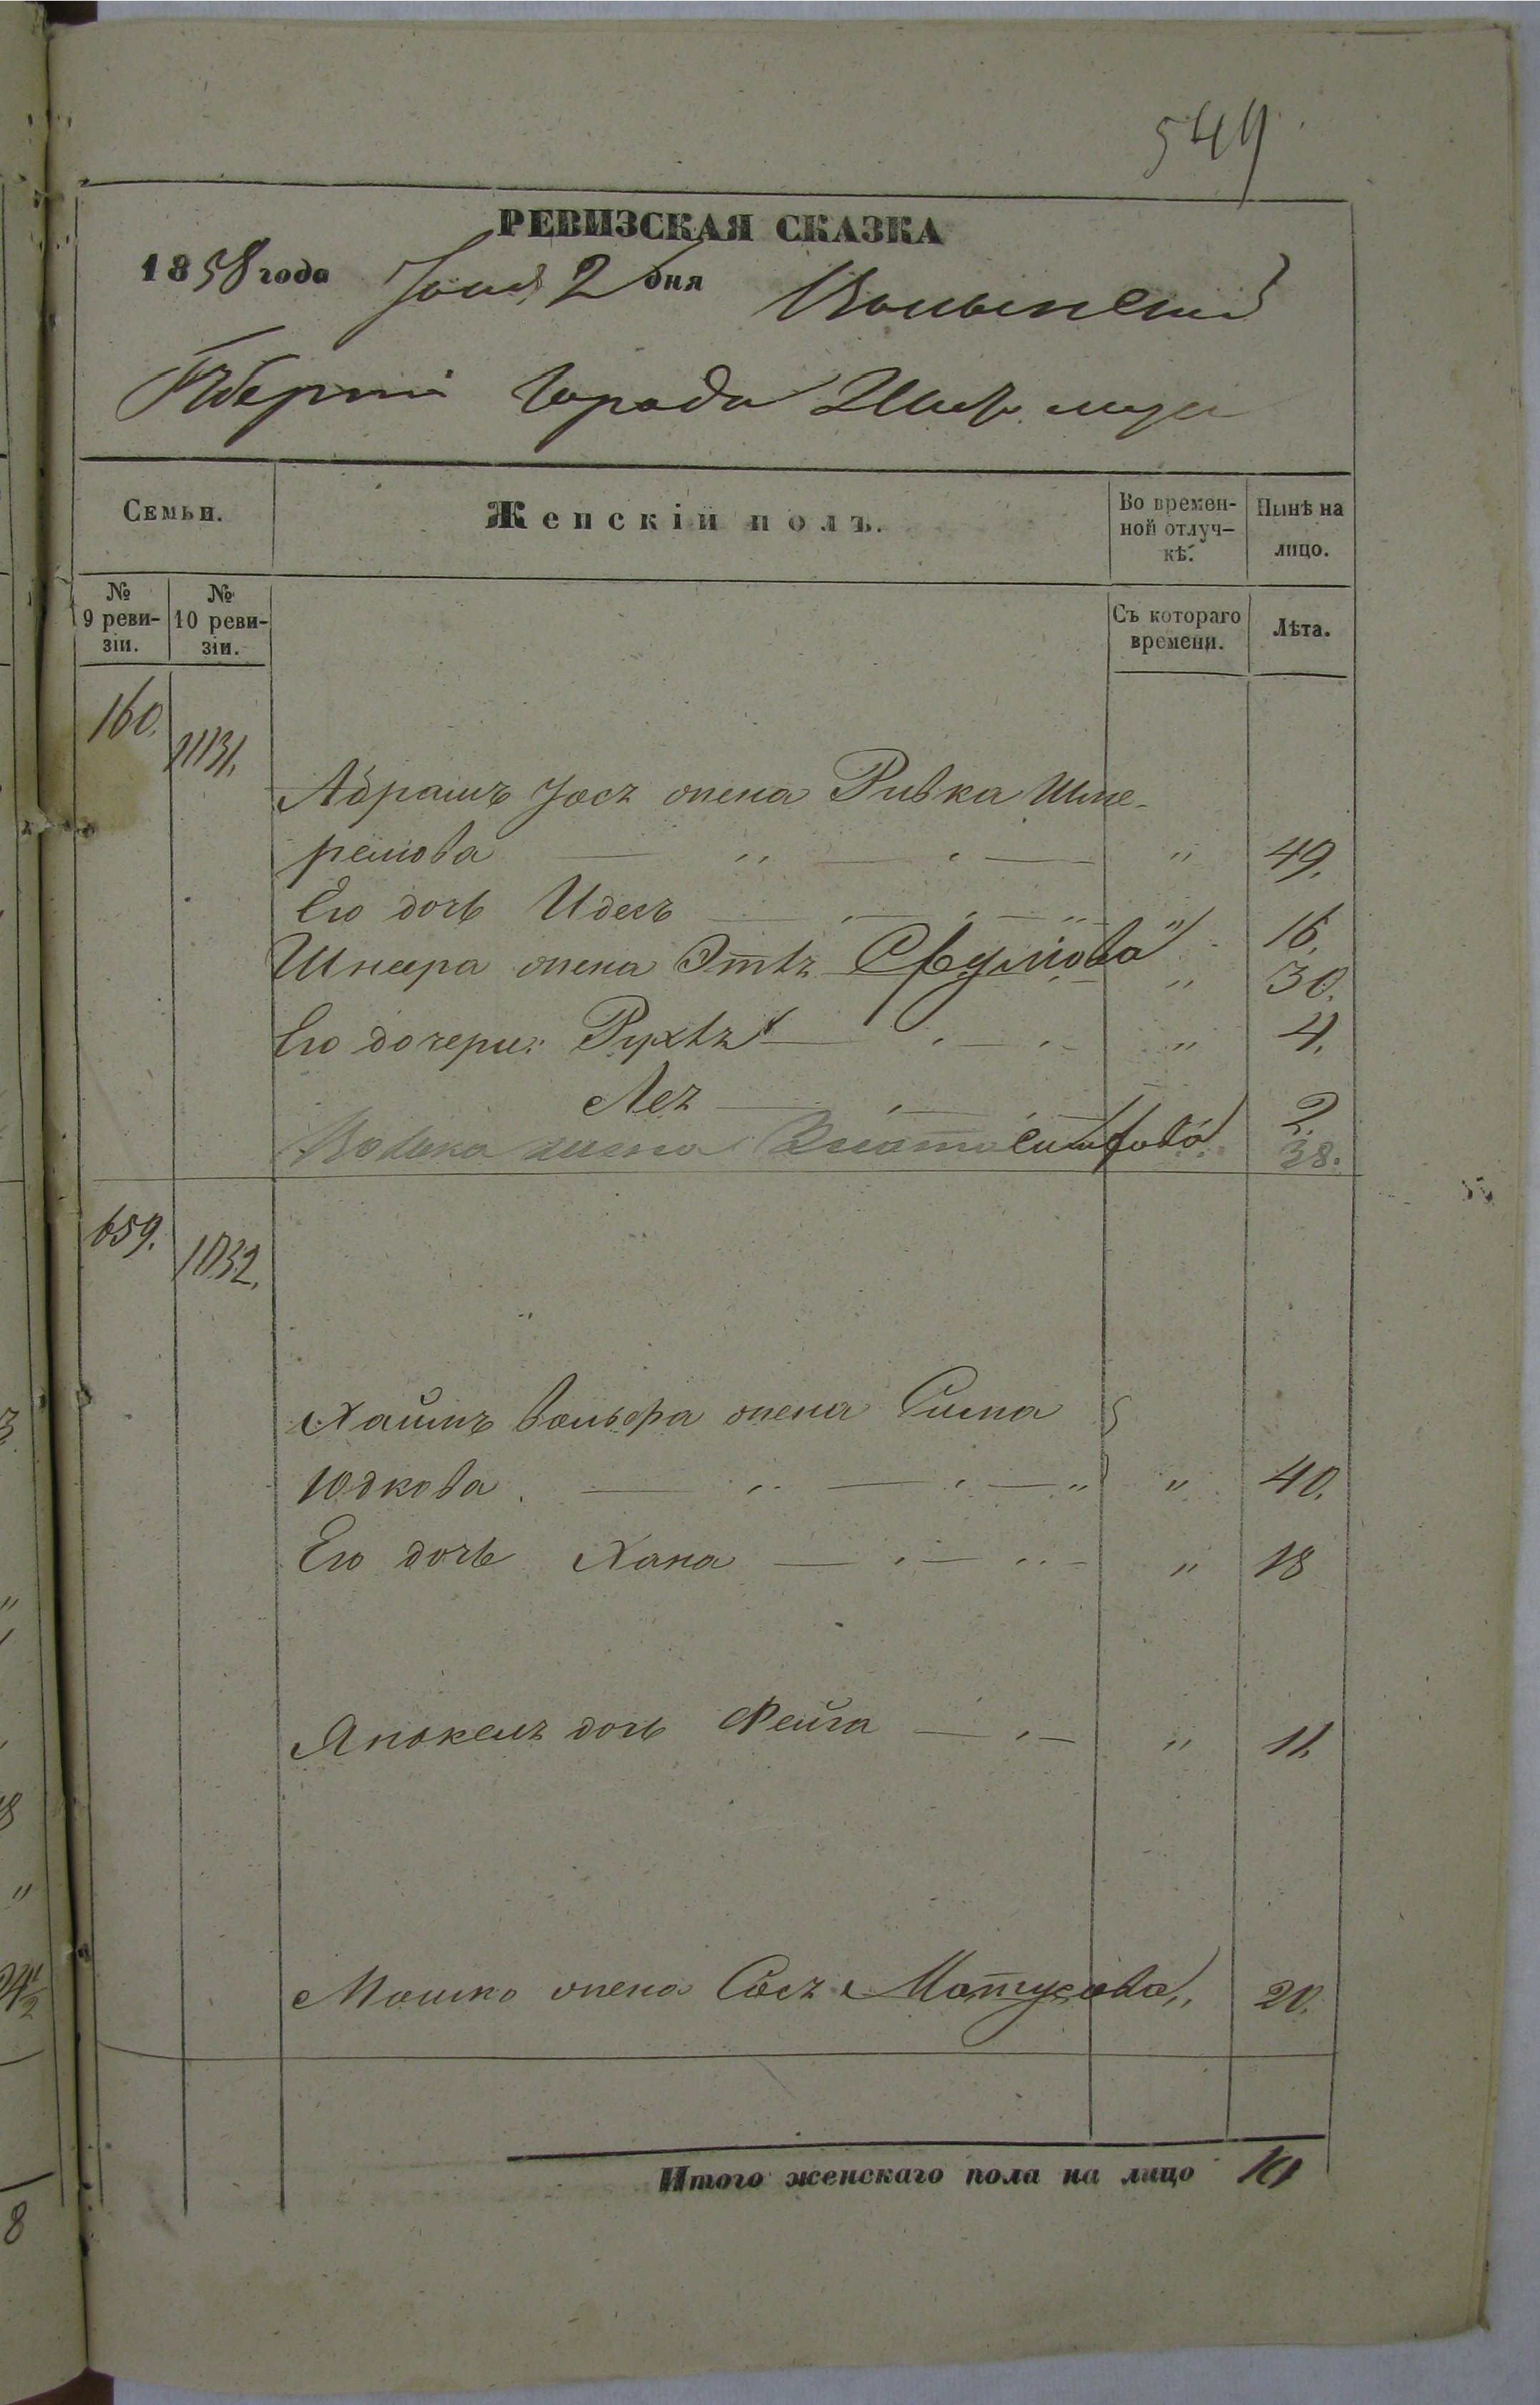 549
РЕВИЗСКАЯ СКАЗКА
1858 года Іюня 2 дня Волынской
Губерніи города
Семьи.
Женскій полъ.
Во времен-
ной отлуч-
кѣ.
Нынѣ на
лицо.
№
9 реви-
зіи.
№
10 реви-
зіи.
Съ котораго
времени.
Лѣта.
160. 1131.
Абрамъ Іосъ жена Ривка Шме-
релiова " 49.
Его дочь Идесъ " 16.
Шнеера жена Этѣъ " 30.
Его дочери: Рухѣъ " 4.
Леъ 2.
жена 38.
659. 1132.
Хаимъ Вольфа жена Сима
Юдкова " 40.
Его дочь Хана " 18
Янкель дочь Фейга " 11.
Мошко жена Сосъ Матусова " 20.
Итого женскаго пола на лицо 10